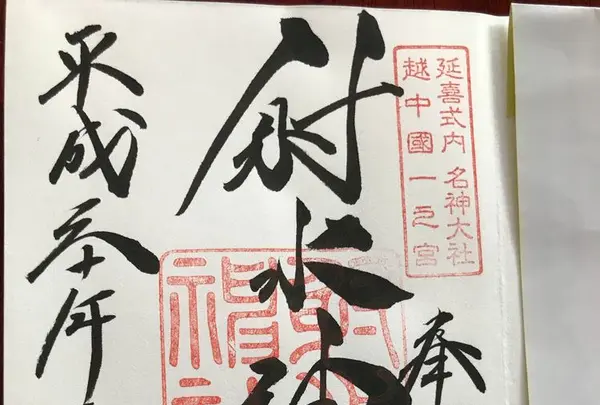 延喜式内 名神大社
越中國一之宮
奉
射水神
平成三十年